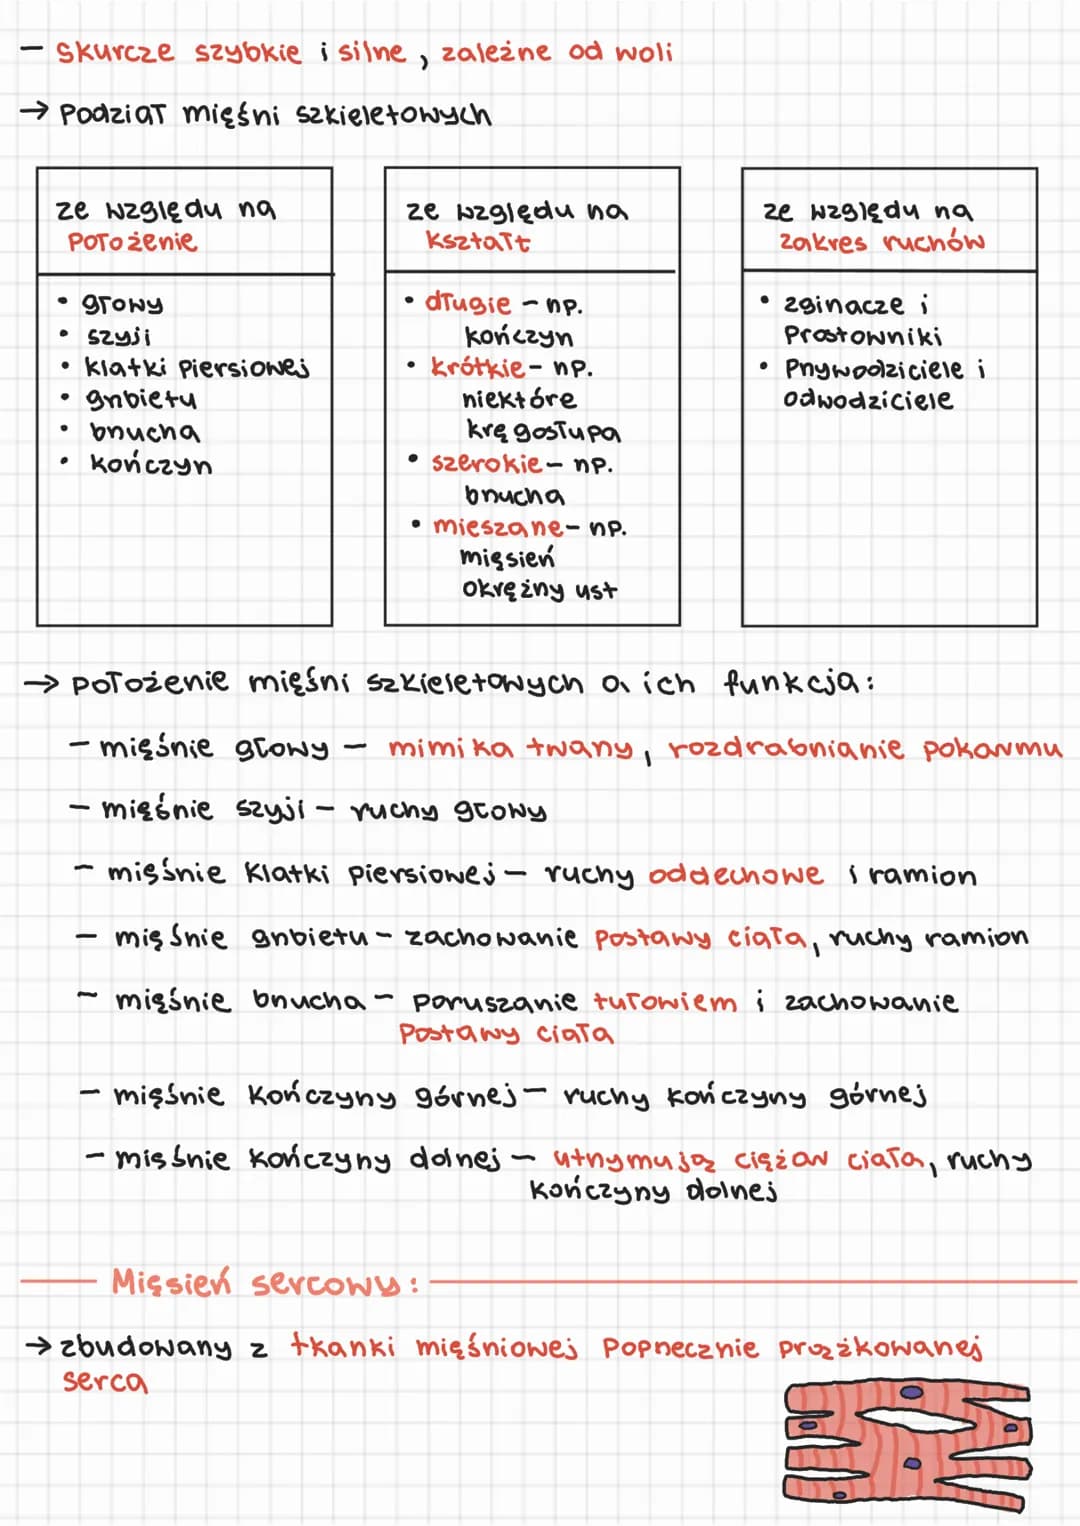 - Skurcze szybkie i silne, zależne od woli
→ Podział mięśni szkieletowych
ze względu na
położenie
• głowy
• szyji
• klatki piersiowej
• grzbietu
• brzucha
• kończyn
ze względu na
kształt
• długie - np.
kończyn
• krótkie - np.
niektóre
kręgosłupa
• szerokie - np.
brzucha
• mieszane - np.
mięsień
okrężny ust
ze względu na
zakres ruchów
• zginacze i
Prostowniki
• Przywodziciele i
odwodziciele
→ położenie mięśni szkieletowych a ich funkcja:
- mięśnie głowy - mimika twarzy, rozdrabnianie pokarmu
- mięśnie szyji - ruchy głowy
- mięśnie klatki piersiowej - ruchy oddechowe i ramion
- mięśnie grzbietu - zachowanie postawy ciała, ruchy ramion
- mięśnie brzucha - poruszanie tułowiem i zachowanie
postawy ciała
- mięśnie kończyny górnej - ruchy kończyny górnej
- mięśnie kończyny dolnej - utrzymują ciężar ciała, ruchy
kończyny dolnej
Mięsień sercowy:
→ zbudowany z tkanki mięśniowej poprzecznie prążkowanej
serca